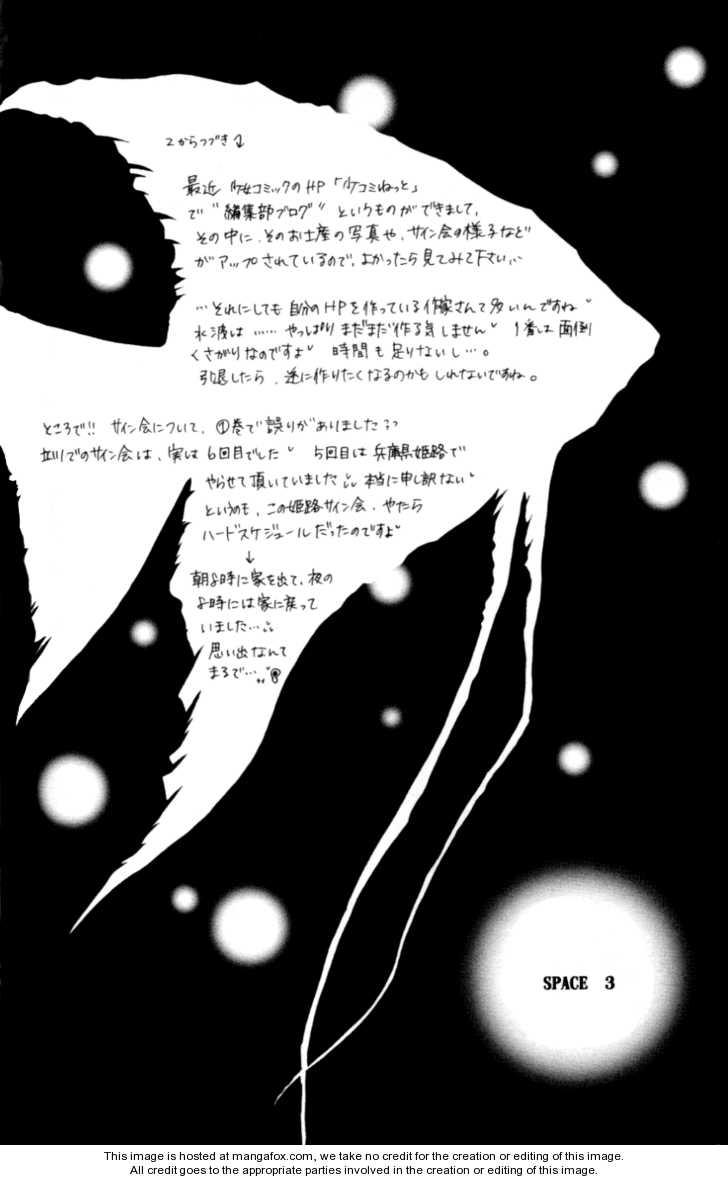 2からつづき
最近 少女コミックのHP「少コミねっと」
で"編集部ブログ"というものができまして、
その中に、そのお土産の写真や、サイン会の様子など
がアップされているので、よかったら見てみて下さい…
…それにしても自分のHPを作っている作家さんて多いんですね
水波は……やっぱりまだまだ作る気しません 1番は面倒
くさがりなのですよ 時間も足りないし…。
引退したら、逆に作りたくなるのかもしれないですね。
ところで!! サイン会について、①巻で誤りがありました
立川でのサイン会は、実は6回目でした 5回目は兵庫県姫路で
やらせて頂いていました 本当に申し訳ない
というのも、この姫路サイン会、やたら
ハードスケジュールだったのですよ
↓
朝8時に家を出て、夜の
8時には家に戻って
いました…
思い出なんて
まるで…
SPACE 3
This image is hosted at mangafox.com, we take no credit for the creation or editing of this image.
All credit goes to the appropriate parties involved in the creation or editing of this image.